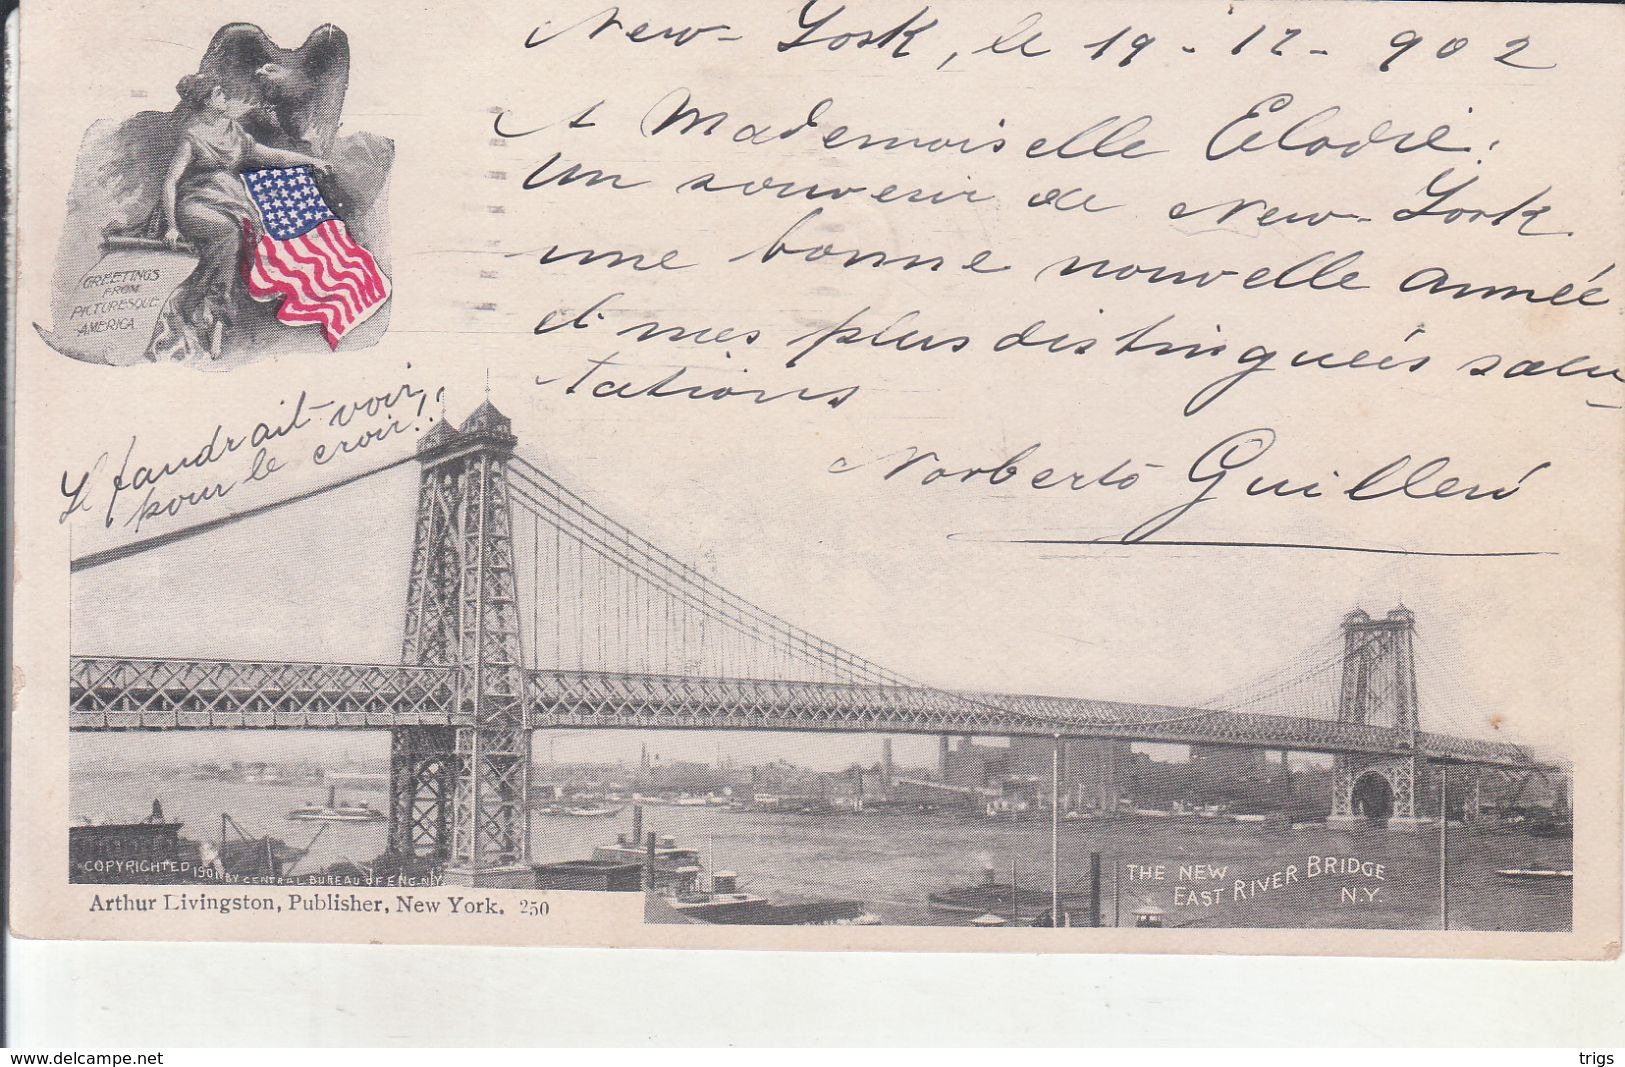 New-York, le 19-12-902
A Mademoiselle Elodie:
Un souvenir de New-York
une bonne nouvelle année
et mes plus distinguées salu-
tations
Norberto Guillen
GREETINGS
FROM
PICTURESQUE
AMERICA
Il faudrait voir,
pour le croir!!
COPYRIGHTED 1901 BY CENTRAL BUREAU OF ENG. N.Y.
THE NEW
EAST RIVER BRIDGE
N.Y.
Arthur Livingston, Publisher, New York. 250
delcampe.net
trigs